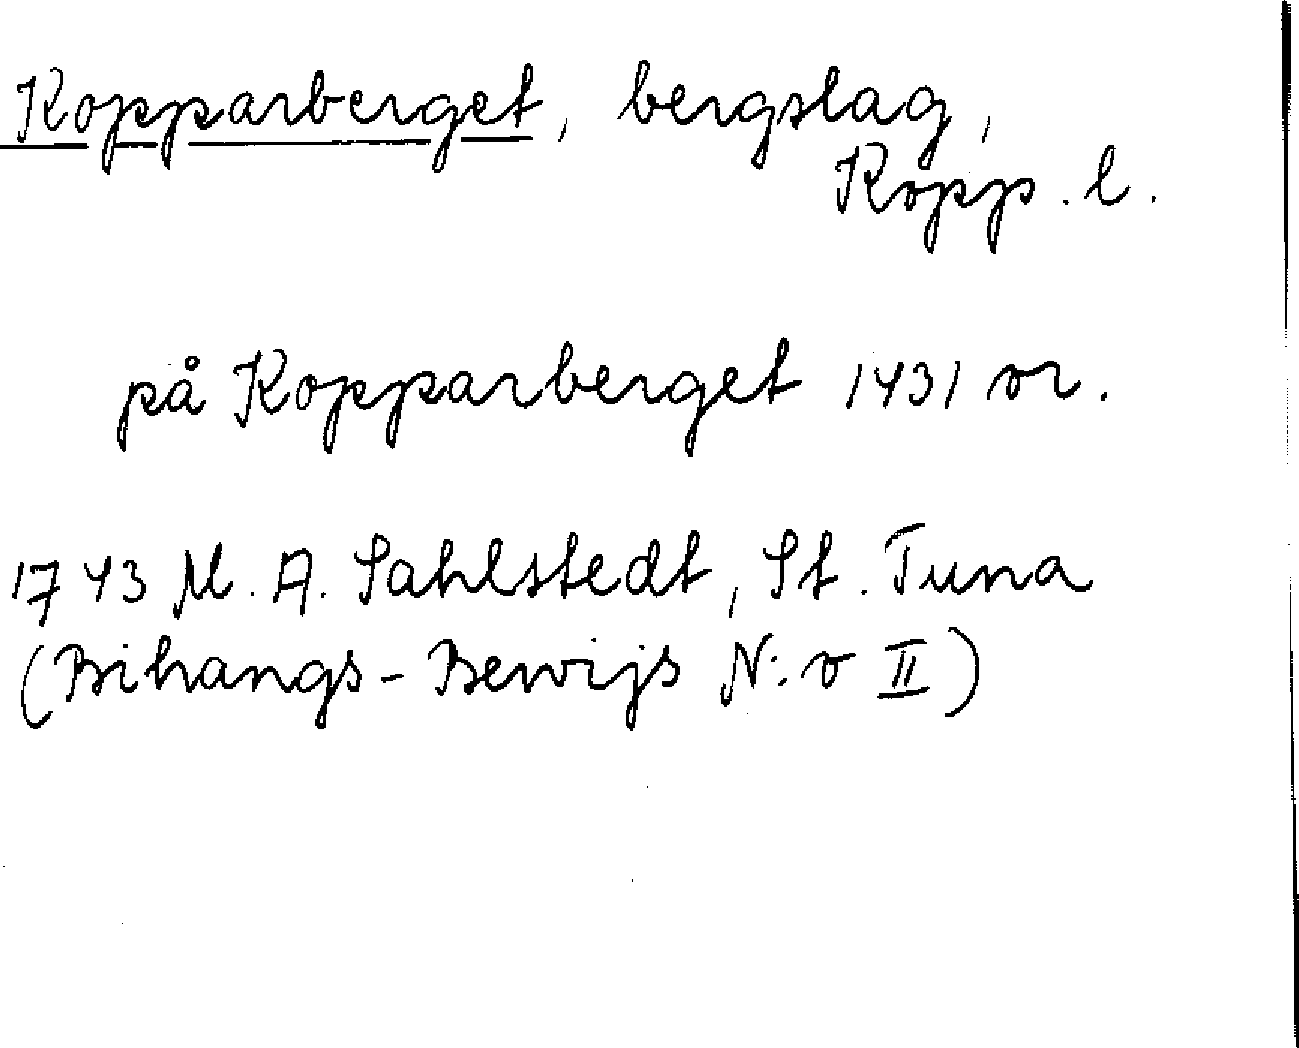 Kopparberget, bergslag,
Kopp. l.
på Kopparberget 1431 or.
1743 M. A. Sahlstedt, St. Tuna
(Bihangs-Bewijs N:o II)